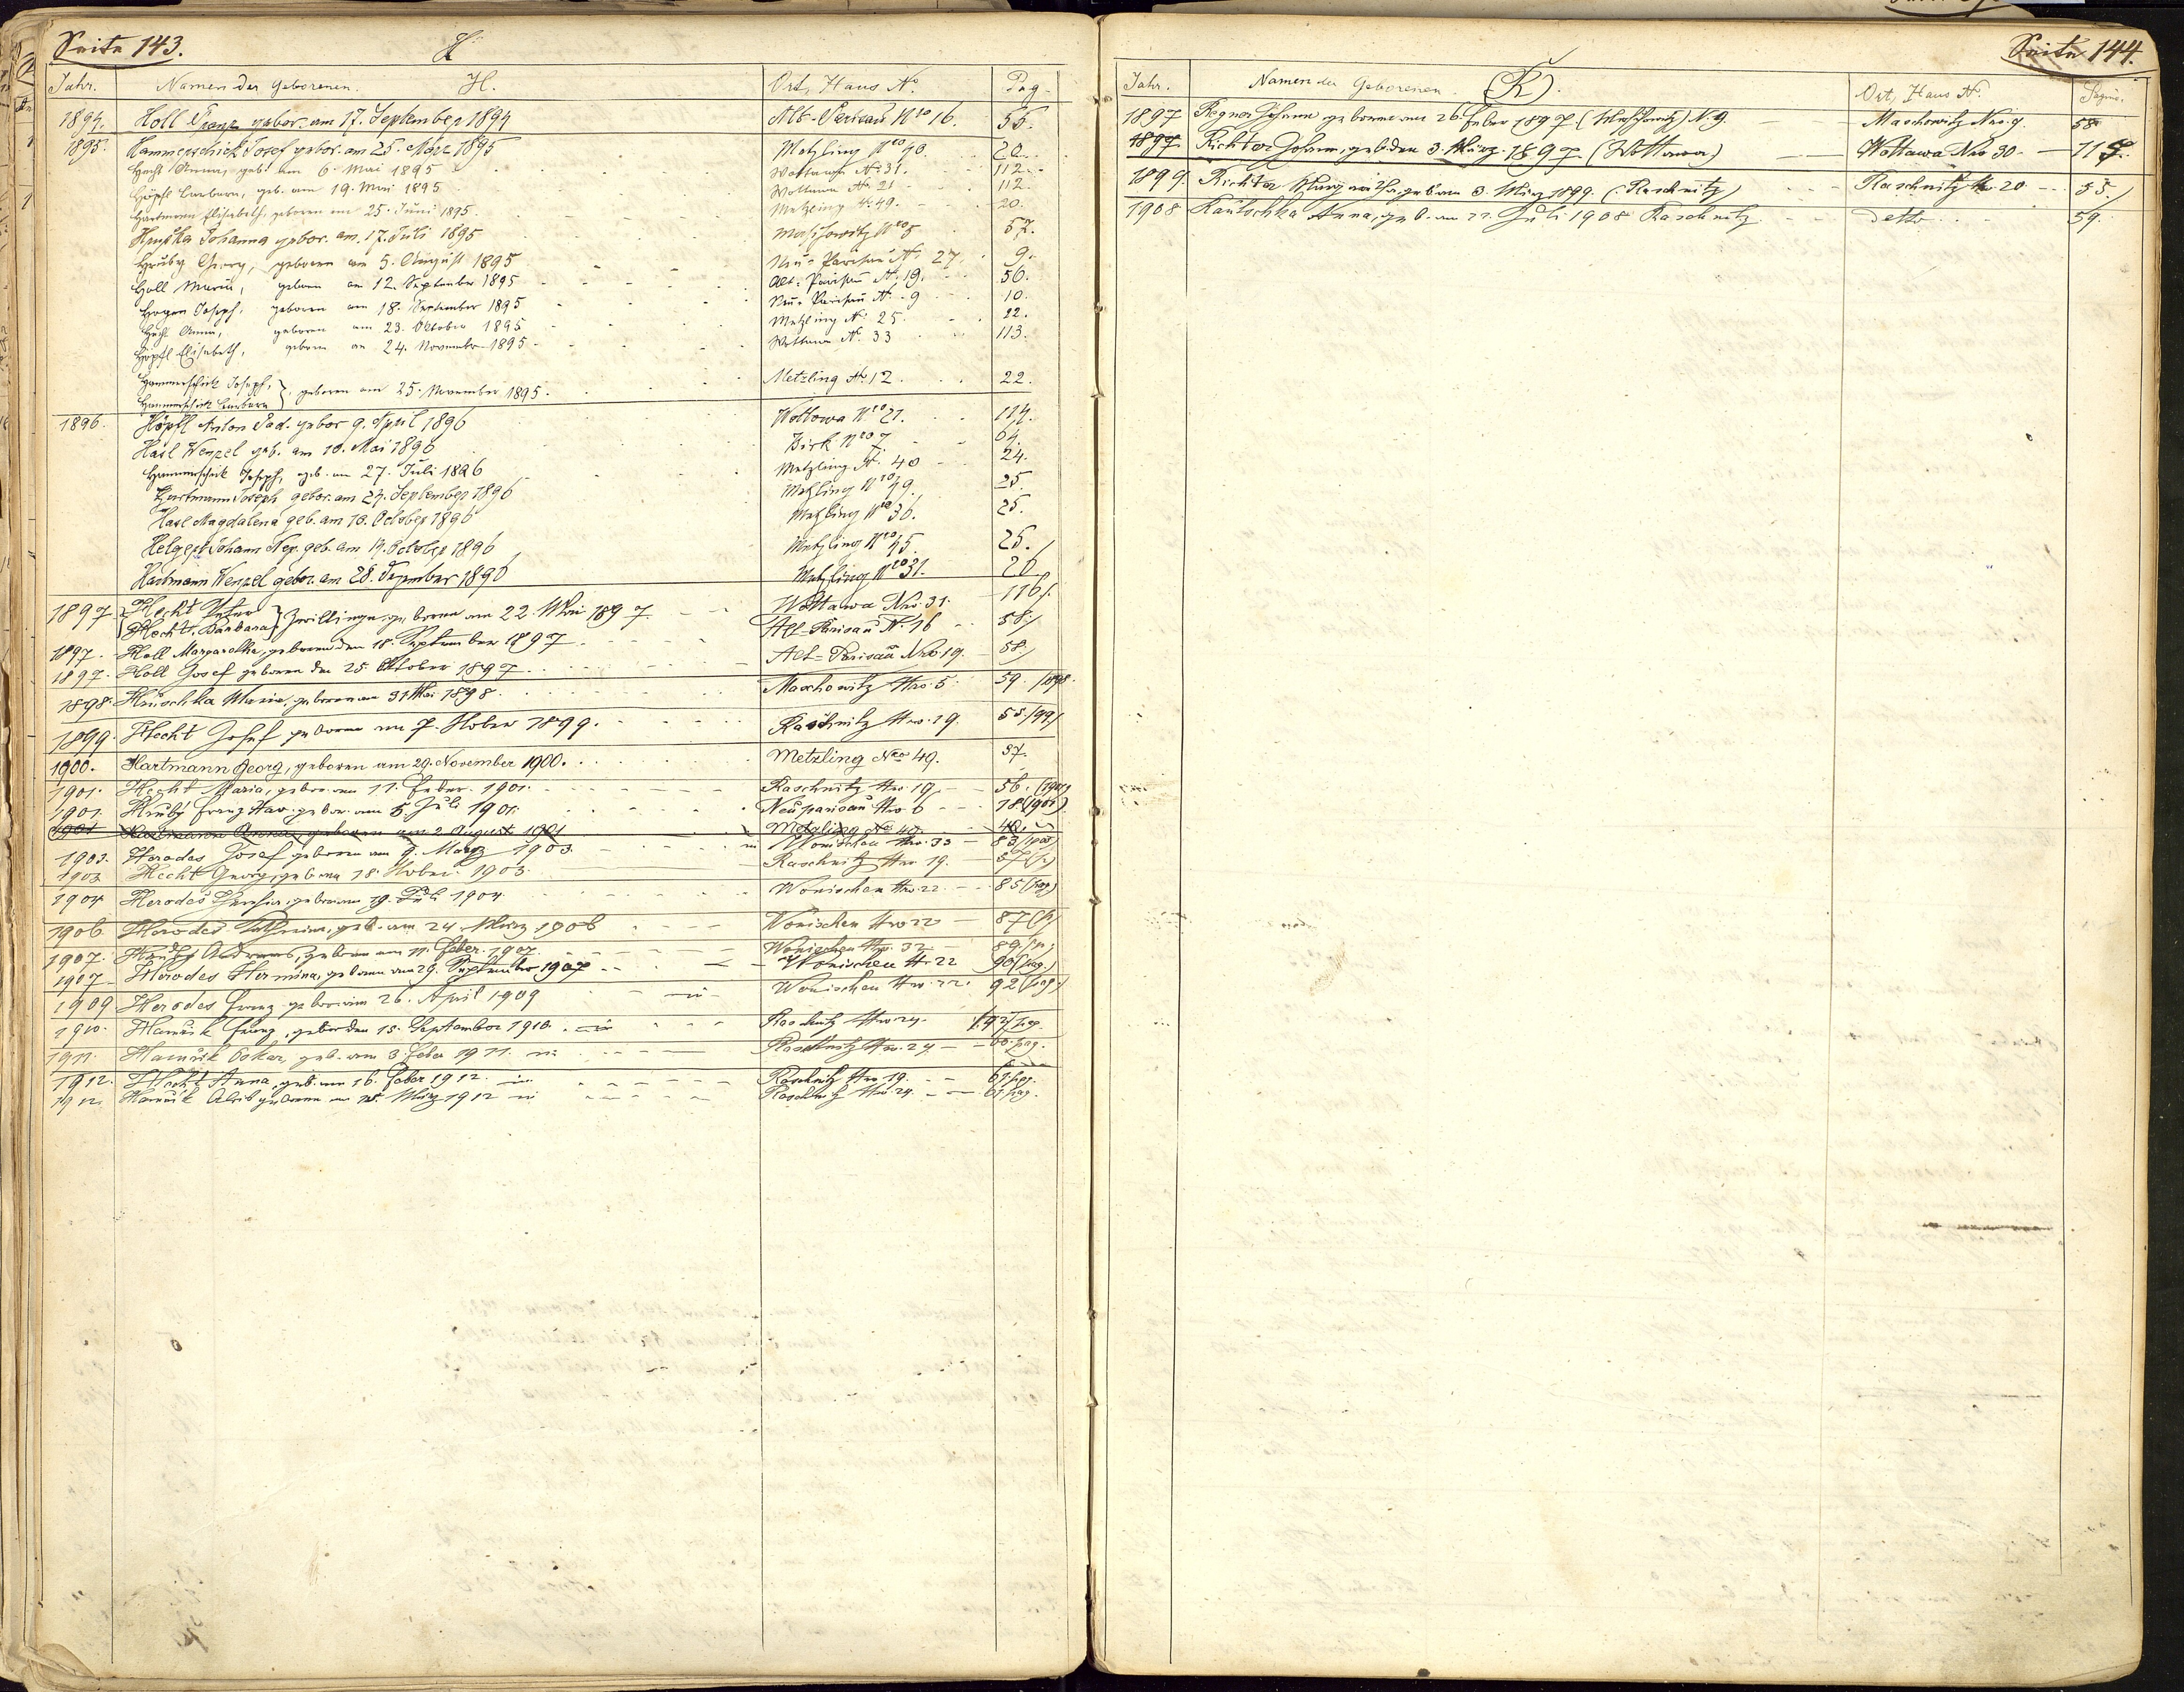 Seite 143.
H
Jahr. Namen der Geborenen. H. Ort, Haus No Pag.
1894. Holl Franz gebor. am 17. September 1894 Alt-Parisau Nro 16. 55.
1895. Hammerschick Josef gebor. am 25. März 1895 Metzling Nro 40. 20.
Hecht Anna, geb. am 6. Mai 1895 Wottawa No 31. 112.
Höpfl Barbara, geb. am 19. Mai 1895 Wottawa No 21 112.
Hartmann Elisabeth, geboren am 25. Juni 1895. Metzling No 49. 20.
Hruška Johanna gebor. am 17. Juli 1895 Maschowitz Nro 5 57.
Hruby Georg, geboren am 5. August 1895 Neu-Parisau No 27. 9.
Holl Maria, geboren am 12. September 1895 Alt-Parisau No 19. 56.
Joseph, geboren am 18. September 1895 Neu-Parisau No 9 10.
Anna, geboren am 23. Oktober 1895 Metzling No 25 22.
Höpfl Elisabeth, geboren am 24. November 1895 Wottawa No 33 113.
Hammerschick Joseph,
Hammerschick Barbara } geboren am 25. November 1895. Metzling No 12. 22.
1896. Höpfl Anton Pad. gebor 9. April 1896 Wottowa Nro 21. 114.
Hasl Wenzel geb. am 10. Mai 1896 Birk Nro 7 64.
Hammerschick Joseph, geb. am 27. Juli 1896 Metzling No. 40 24.
Hartmann Joseph gebor. am 24. September 1896 Metzling Nro 49. 25.
Hasl Magdalena geb. am 10. October 1896 Metzling Nro 36. 25.
Helgert Johann Nep. geb. am 19. October 1896 Metzling Nro 45. 25.
Hartmann Wenzel gebor. am 28. Dezember 1896 Metzling Nro 31. 26
1897 { Hecht Peter
Hecht Barbara } Zwillinge, geboren am 22. Mai 1897. Wottawa Nro. 31. 116/.
1897. Holl Margaretha, geboren den 18. September 1897 Alt-Parisau No 16 58./
1897. Holl Josef geboren den 25 Oktober 1897 Alt-Parisau Nro 19. 58./
1898. Hruschka Maria, geboren am 31 Mai 1898. Maschowitz Nro. 5. 59. /1898.
1899. Hecht Josef geboren am 7. Nober 1899. Raschnitz Nro. 19. 55./99/
1900. Hartmann Georg, geboren am 29. November 1900. Metzling Nro 49. 37.
1901. Hecht Maria, gebor. am 11. Feber. 1901. Raschnitz Nro. 19. 56. (1901)
1901. Hruby Franz Xav. gebor. am 5. Juli 1901. Neuparisau Nro. 6 18 (1901)
1901 Hartmann Anna, geboren am 2 August 1901 Metzling No 49. 40.
1903. Herodes Josef geboren am 9. März 1903. in Wonischen Nro. 33 83/pag/
1903 Hecht Georg, geb. am 18. Nober. 1903. Raschnitz Nro. 19. 57
1904 Herodes Theresia, geboren am 19. Juli 1904 Wonischen Nro. 22 85 (pag)
1906 Herodes Katharina, geb. am 24 März 1906 Wonischen Nro 22 87 (p)
1907. Hruby Andreas, geboren am 11. Feber. 1907 Wonischen Nro. 32. 89.
1907 Herodes Hermina, geboren am 29. September 1907 Wonischen Nr 22 90 (pag.)
1909 Herodes Franz geboren am 26. April 1909 in Wonischen Nro. 22. 92 (pag.)
1910. Franz, gebor den 15. September 1910. in Raschnitz Nro 24.
1911. Oskar, geb. am 3. Feber 1911. in Raschnitz Nro. 24 60. pag.
1912. Hecht Anna, geb. am 16. Feber 1912. in Raschnitz Nro. 19. 61. pag.
1912. Alois geboren am 15. März 1912 in Raschnitz Nro. 24. 61. pag.
Seite 144.
Jahr. Namen der Geborenen. (R). Ort, Haus No. Pagina.
1897 Regner Johann geboren am 26. Feber 1897 (Maschowitz) N. 9. Maschowitz Nro. 9. 58
1897 Richter Johann, geb. den 3. März 1897. (Wottawa) Wottawa Nro 30. 115.
1899. Richter Margaretha, geb. am 3. März 1899. (Raschnitz) Raschnitz Nr. 20. 55./
1908 Rautschka Anna, geb. am 22. Juli 1908 Raschnitz detto 59.